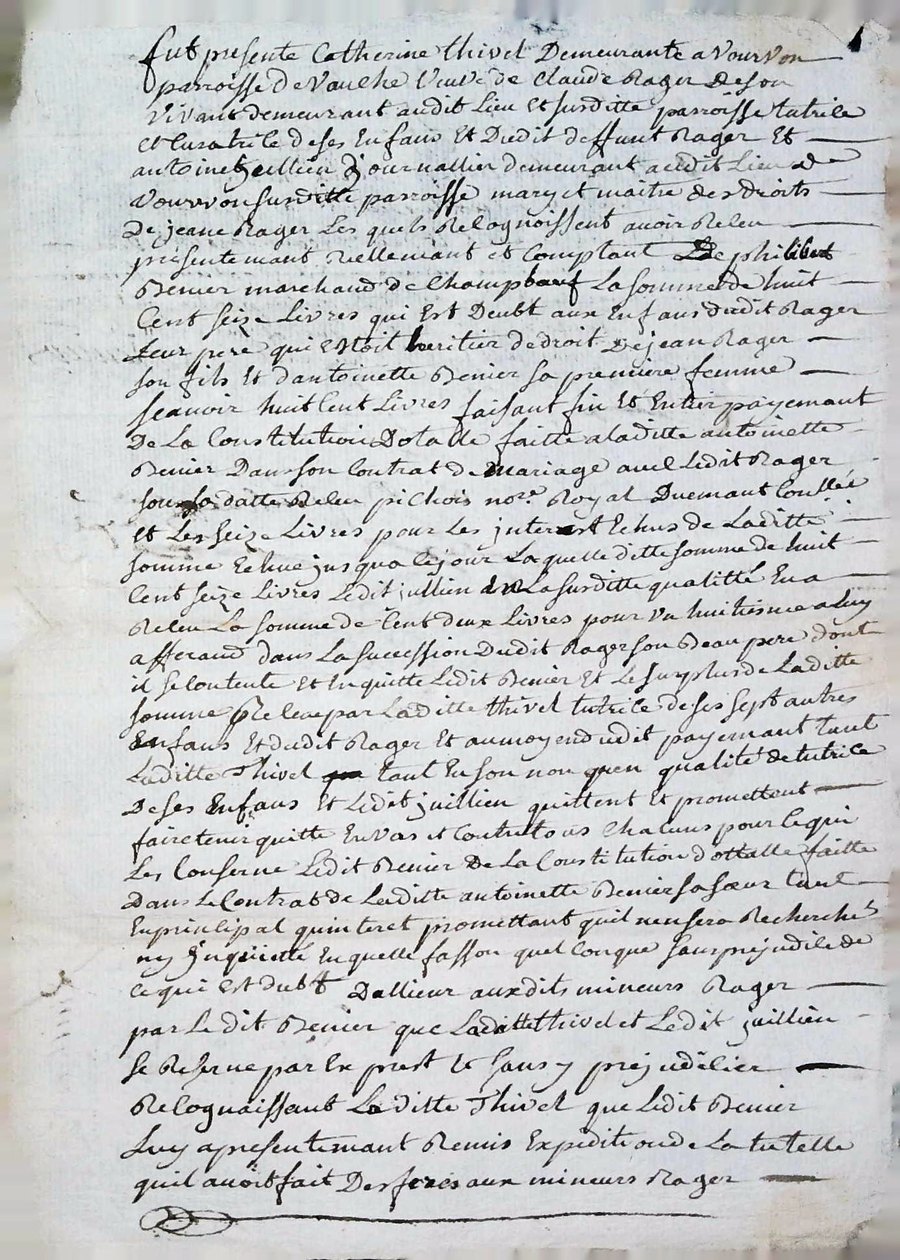 fut presente Catherine thivel Demeurante a Vourvon
parroisse de Vauche Veuve de Claude Rager de son
Vivant demeurant audit Lieu et susditte parroisse tutrice
et Curatrice de ses Enfans Et Dudit deffunt Rager Et
antoine juillien journallier demeurant audit Lieu de
Vourvon susditte parroisse mary et maitre des droits
De jeane Rager Les quels Recognoissent avoir Receu
presentemant reellemant et Comptant De philibert
Benier marchand de Champbœuf La somme de huit
Cent seize Livres qui Est Deubt aux Enfans dudit Rager
Leur pere qui Estoit heritier de droit De jean Rager
son fils Et d'antoinette Benier sa premiere femme
sçauoir huit Cent Livres faisant fin Et Entier payemant
De La Constitution Dotalle faitte a laditte antoinette
Benier Dans son Contrat de mariage avec Ledit Rager
sous sa datte Receu pichois nore Royal Duemant
et Les seize Livres pour Les interest Echus de Laditte
somme Echue jusqua Ce jour Laquelle ditte somme de huit
Cent seize Livres Ledit jullien en La susditte qualitté En a
Receu La somme de Cent deux Livres pour Vn huitiesme a Luy
afferand dans La succession Dudit Rager son Beau pere dont
il se Contente Et En quitte Ledit Benier Et Le surplus de Laditte
somme Receue par Laditte thivel tutrice de ses sept autres
Enfans Et dudit Rager Et au moyen dudit payemant tant
Laditte Thivel tant En son non quen qualité de tutrice
De ses Enfans Et Ledit juillien quittent Et promettent
faire tenir quitte Envers et Contre tous Chacuns pour Ce qui
Les Conserne Ledit Benier De La Constitution dottalle faitte
Dans Le Contrat de Laditte antoinette Benier sa sœur tant
En principal quinteret promettant quil nen sera Recherché
ny Jnquieté En quelle fasson quel Conque sans prejudice de
Ce qui Est dubt Dallieur aux dits mineurs Rager
par Le dit Benier que Laditte thivel et Ledit juillien
se Reserve par Exprest Et sans y prejudicier
Recognaissant Laditte Thivel que Ledit Benier
Luy a presentemant Remis Expedition de La tutelle
quil avoit fait Des feres aux mineurs Rager